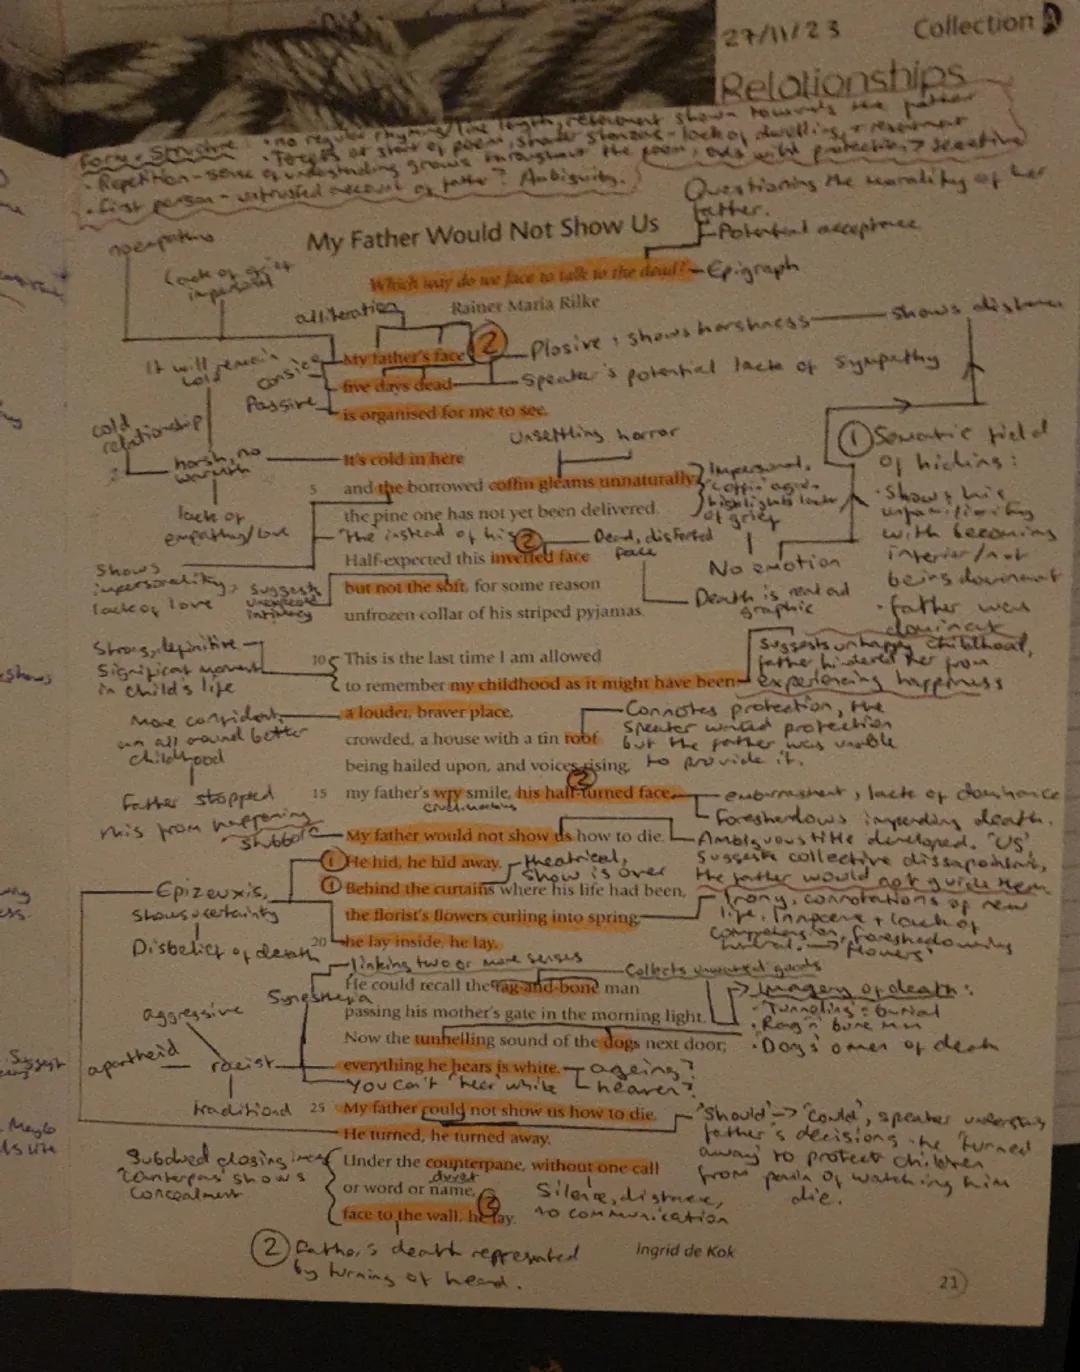 27/11/23
Collection A
Relationships
Form + Structure: • no regular rhyming/line length, resentment shown towards the father
• Tercets at start of poem, shorter stanzas - lack of dwelling, + resentment
• Repetition - sense of understanding grows throughout the poem, ends with protection?
• First person - untrusted account of father? Ambiguity.
Questioning the morality of her
father.
Potential acceptance
no empathy
My Father Would Not Show Us
Lack of grief
impersonal
Which way do we face to talk to the dead?
Epigraph
Rainer Maria Rilke
alliteration
My father's face
2
Plosive, shows harshness
shows distance
It will remain
cold
five days dead
Speaker's potential lack of sympathy
Passive
is organised for me to see.
cold
relationship
Unsettling horror
1 Semantic field
of hiding:
harsh, no
warmth
It's cold in here
5
and the borrowed coffin gleams unnaturally;
Impersonal,
'coffin' again
highlights lack
of grief
• Shows his
unfamiliarity
with becoming
inferior/not
being dominant
• father was
dominant
lack of
empathy/love
the pine one has not yet been delivered.
'The' instead of 'his'
2
Dead, distorted
face
Half-expected this inverted face
No emotion
Shows
impersonality,
lack of love
suggests
unexpected
intimacy
but not the soft, for some reason
Death is real and
graphic
unfrozen collar of his striped pyjamas.
Strong, definitive
Significant moment
in child's life
10
This is the last time I am allowed
Suggests unhappy childhood,
father hindered her from
experiencing happiness
to remember my childhood as it might have been:
More confident,
an all around better
childhood
a louder, braver place,
Connotes protection, the
speaker wanted protection
but the father was unable
to provide it.
crowded, a house with a tin roof
being hailed upon, and voices rising,
2
Father stopped
this from happening
15
my father's wry smile, his half-turned face.
embarrassment, lack of dominance
Foreshadows impending death.
cruel-mocking
stubborn
My father would not show us how to die.
Ambiguous title developed. 'Us'
suggests collective dissapointment,
the father would not guide them
1 He hid, he hid away.
theatrical,
show is over
1 Behind the curtains where his life had been,
Epizeuxis,
shows uncertainty
Disbelief of death
the florist's flowers curling into spring,
Irony, connotations of new
life. Innocence + lack of
comprehension, foreshadowing
funeral. → 'flowers'
20
he lay inside, he lay.
linking two or more senses
Collects unwanted goods
Synesthesia
He could recall the rag-and-bone man
Imagery of death:
• Tunnelling = burial
• Rag 'n' bone man
• Dogs' omen of death
aggressive
passing his mother's gate in the morning light.
Now the tunnelling sound of the dogs next door;
apartheid
racist
everything he hears is white.
ageing?
heaven?
You can't 'hear' white
traditional
25
My father could not show us how to die.
'Should' → 'could', speaker understands
father's decisions - he 'turned
away' to protect children
from pain of watching him
die.
He turned, he turned away.
Subdued closing image
'Counterpane' shows
concealment
Under the counterpane, without one call
duvet
or word or name,
2
Silence, distance,
no communication
face to the wall, he lay.
2 Father's death represented
by turning of head.
Ingrid de Kok
21